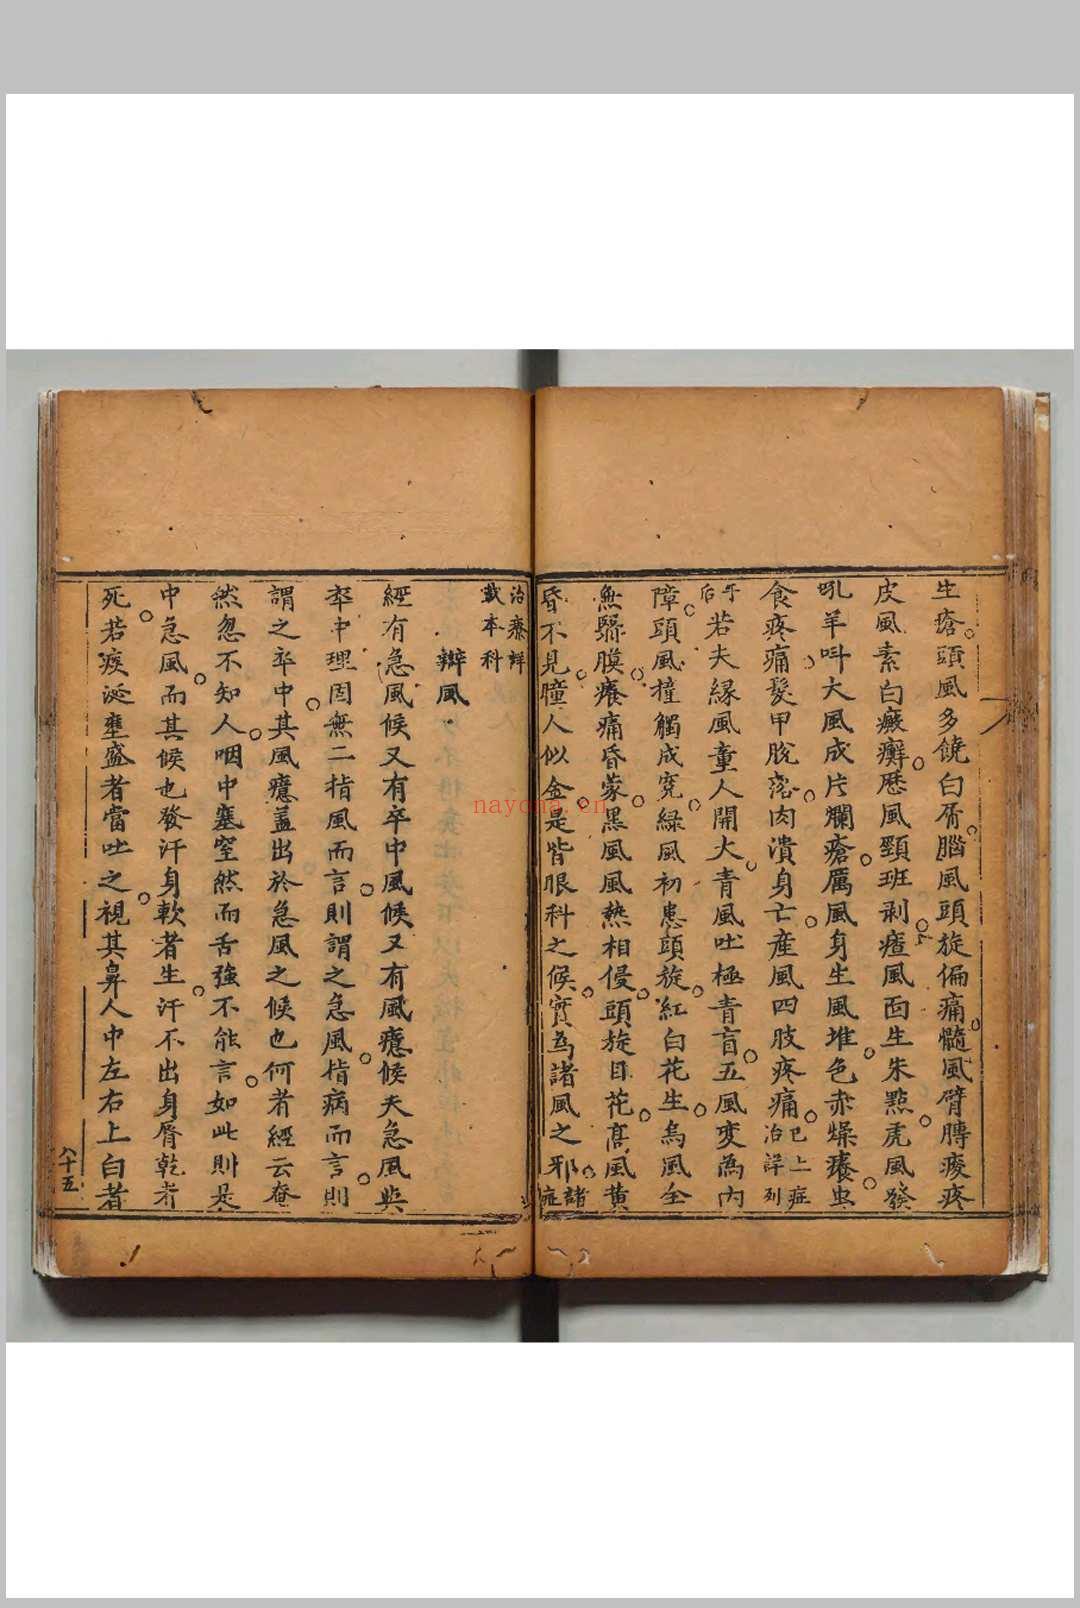 生瘡頭風多饒白屑腦風頭旋偏痛髓風臂膊痠疼
皮風素白癜癬歷風頸班剥瘡風面生朱㸃虎風發
吼羊呌大風成片爛瘡厲風身生風堆色赤燥癢虫
食疼痛髮甲脫落肉潰身亡産風四肢疼痛已上症治詳列
于后若夫縁風童人開大青風吐極青盲五風変為内
障頭風撞觸成寃緑風初患頭旋紅白花生烏風全
無翳膜癢痛昏蒙黒風風熱相侵頭旋目花髙風黄
昏不見瞳人似金是皆眼科之候實為諸風之邪諸症
治療詳載本科
辯風
經有急風候又有卒中風候又有風癔候夫急風與
卒中理固無二指風而言則謂之急風指病而言則
謂之卒中其風癔蓋出於急風之候也何者經云奄
然忽不知人咽中塞窒然而舌強不能言如此則是
中急風而其候也發汗身軟者生汗不出身脣乾者
死若痰涎壅盛者當吐之視其鼻人中左右上白者
八十五
nayona.cn